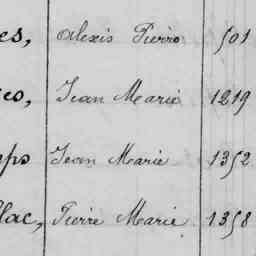 es, Alexis Pierre 501
eo, Jean Marie 1219
ps Jean Marie 1352
llac, Pierre Marie 1358